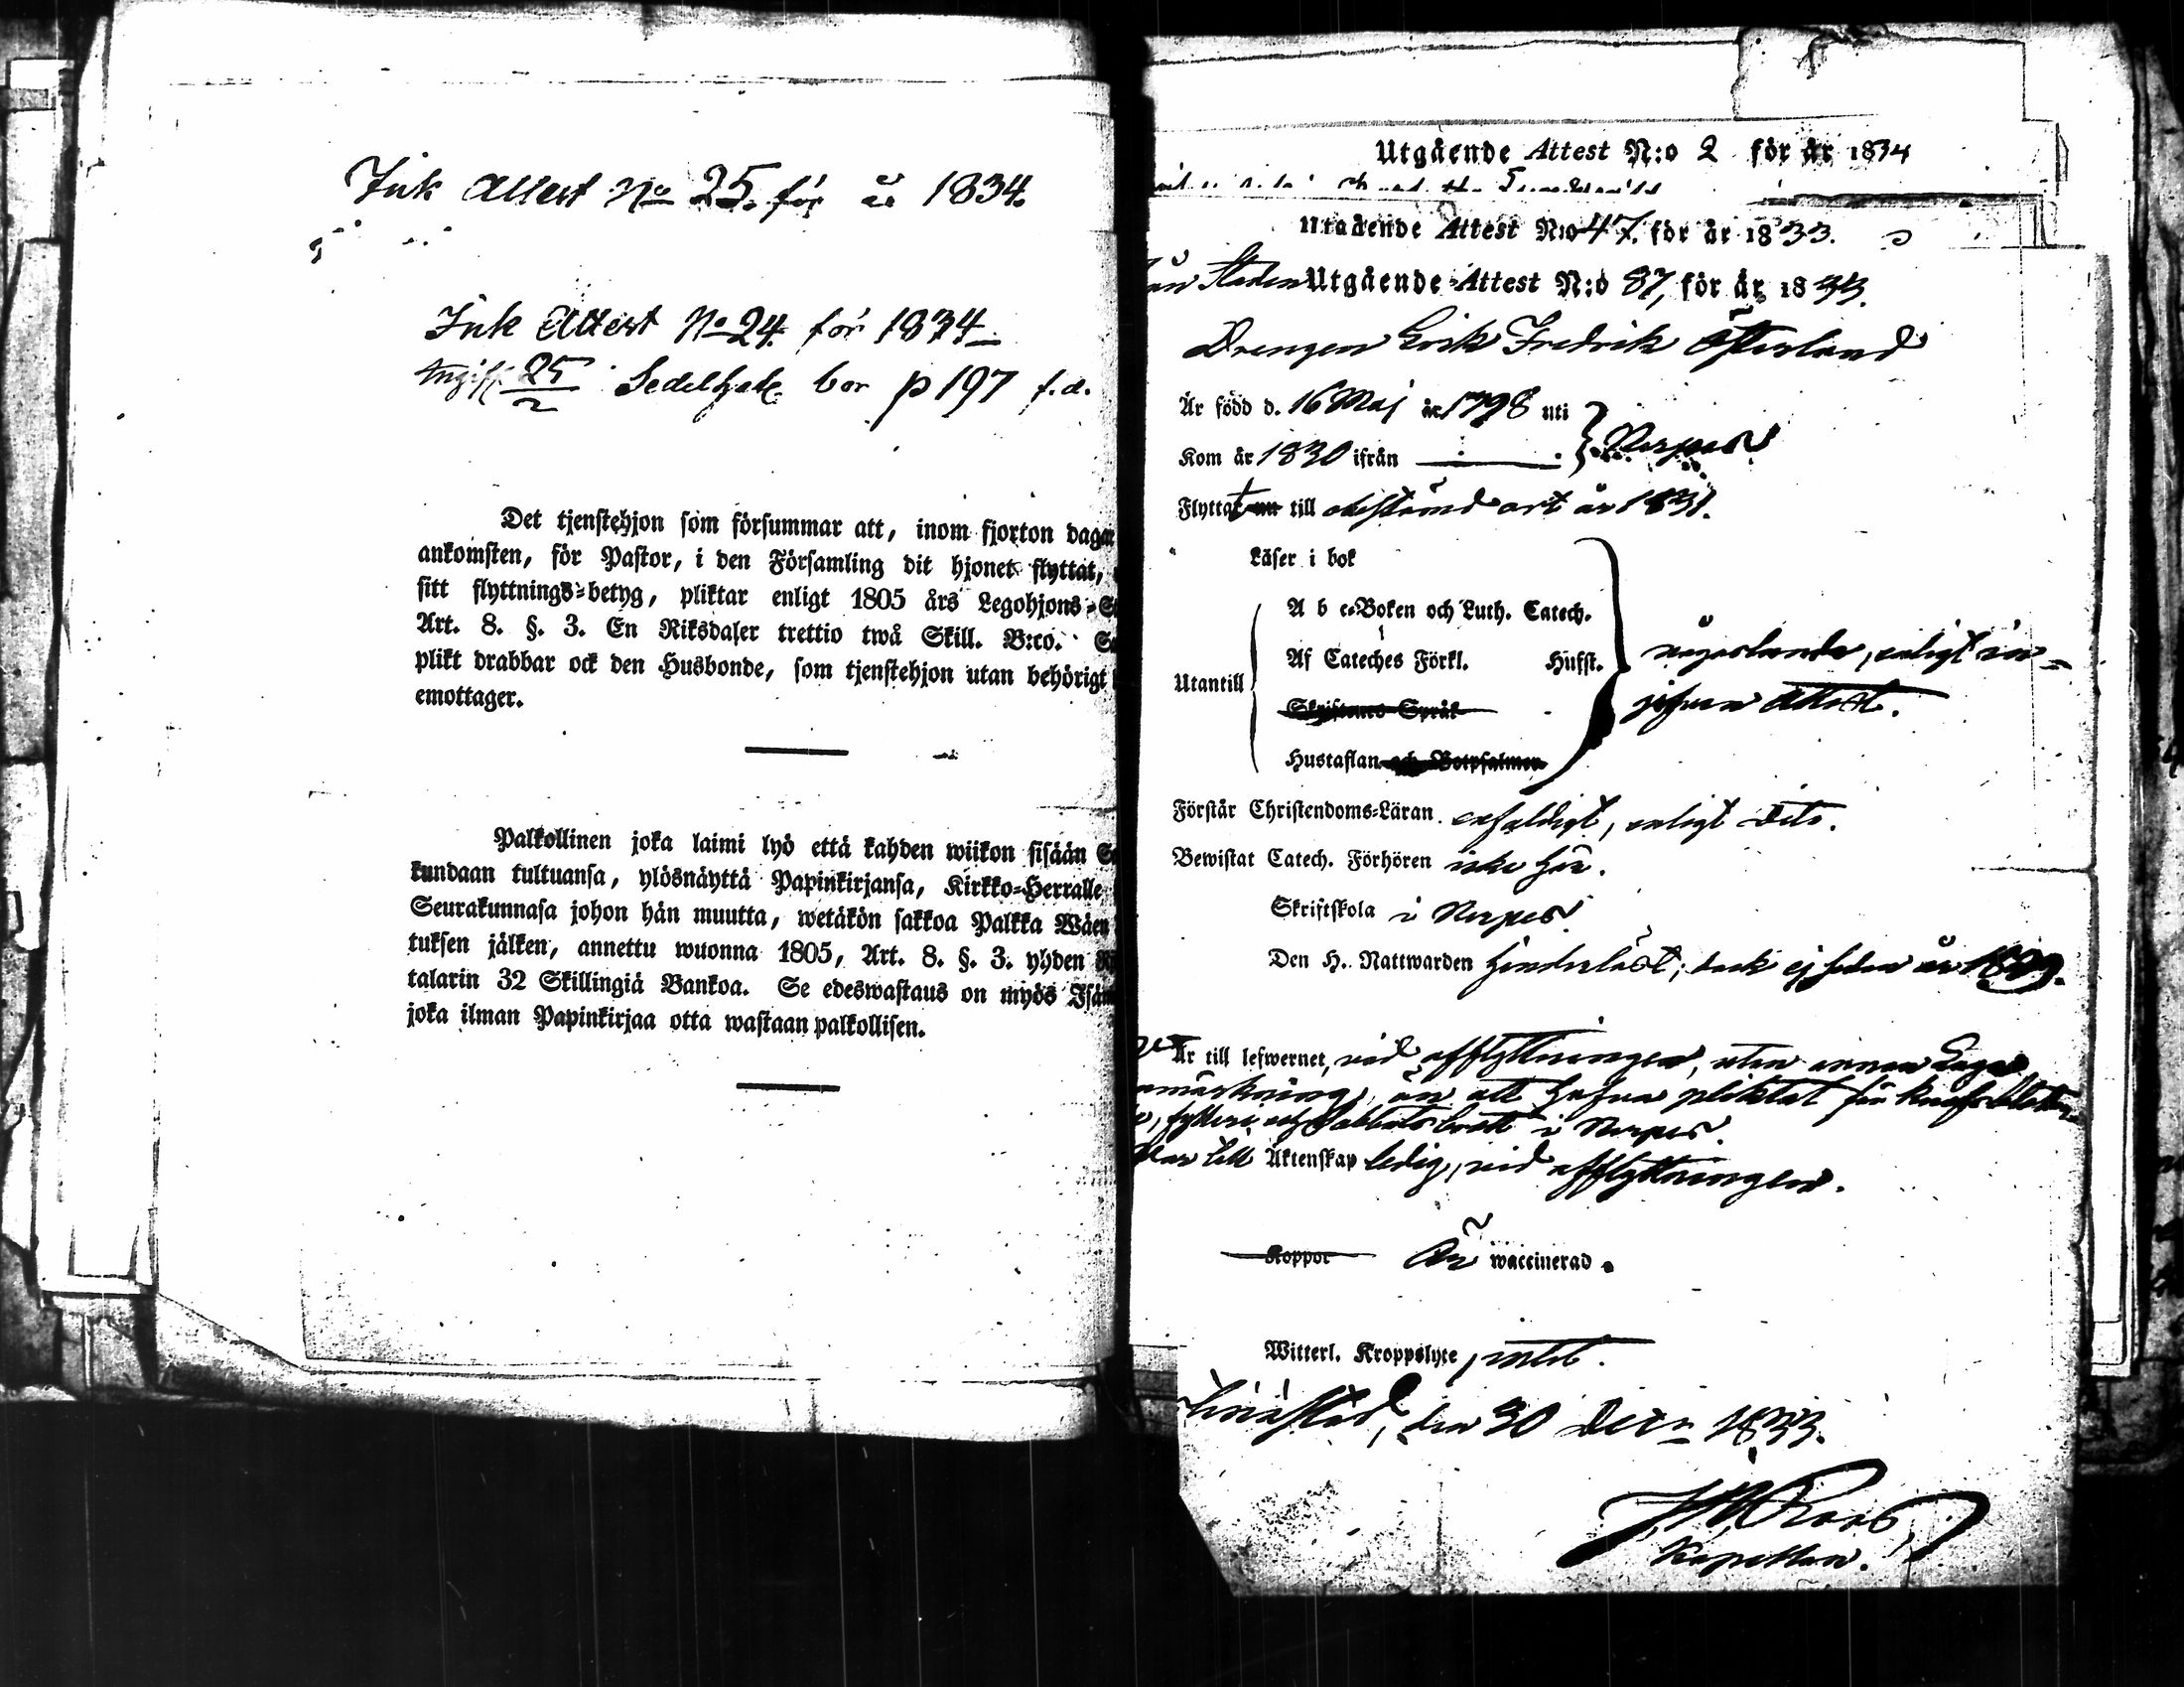 Ink Attest No 25. för år 1834.
Ink Attest No 24. för 1834
25
2
Sedelhafv. bor p 197 f.d.
Det tjenstehjon som försummar att, inom fjorton dagar
ankomsten, för Pastor, i den Församling dit hjonet flyttat,
sitt flyttnings-betyg, pliktar enligt 1805 års Legohjons-S
Art. 8. §. 3. En Riksdaler trettio twå Skill. B:co. S
plikt drabbar ock den Husbonde, som tjenstehjon utan behörigt
emottager.
Palkollinen joka laimi lyö että kahden wiikon sisään S
kundaan tultuansa, ylösnäyttä Papinkirjansa, Kirkko-Herralle
Seurakunnasa johon hän muutta, wetäkön sakkoa Palkka Wäen
tuksen jälken, annettu wuonna 1805, Art. 8. §. 3. yhden R
talarin 32 Skillingiä Bankoa. Se edeswastaus on myös Isän
joka ilman Papinkirjaa otta wastaan palkollisen.
Utgående Attest N:o 2 för år 1834
Utgående Attest N:o 47. för år 1833.
Staden Utgående Attest N:o 87, för år 1833.
Drengen Erik Fredrik Österland
Är född d. 16 Maj år 1798 uti
Kom år 1830 ifrån } Nerpes
Flyttat till obestämd ort år 1831.
Läser i bok
A b c-Boken och Luth. Catech.
Af Cateches Förkl. Husst.
Utantill
någorlunda, enligt in-
gifven Attest.
Skriftenes Språk
Hustaflan och Botpsalmer
Förstår Christendoms-Läran enfaldigt, enligt dito.
Bewistat Catech. Förhören icke här.
Skriftskola i Nerpes.
Den H. Nattwarden hinderlöst; dock ej sedan år 1829.
Är till lefwernet, vid afflyttningen, utan annan laga
anmärkning, än att hafva pliktat för
fylleri och Sabbatsbrott i Nerpes.
Var till Äktenskap ledig, vid afflyttningen.
Koppor Är waccinerad.
Witterl. Kroppslyte, intet.
Christinæstad, den 30 Decr 1833.
Roos
Kapellan.